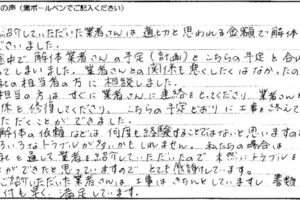 の声（黒ボールペンでご記入ください）
紹介していただいた業者さんは適切と思われる金額で解体
ざいました。
途中で解体業者さんの予定（計画）とこちらの予定と合わ
てしまいました。業者さんとの関係も悪くしたくはなかったの
社の担当者の方に相談しました。
担当の方はすぐに業者さんに連絡をとってくださり、すぐに業
体を修復してくださり、こちらの予定どおりに工事を終えて
ただくことができました。
解体の依頼などは何度も経験することではないと思いますので
ろいろなトラブルが多いかもしれません。私たちの場合は
社を通して業者を紹介していただいたので未然にトラブルを
とができたと思っていますので とても感謝しています。
ご紹介いただいた業者さんは、工事はきちんとしていますし 書類
付も早く、満足しています。